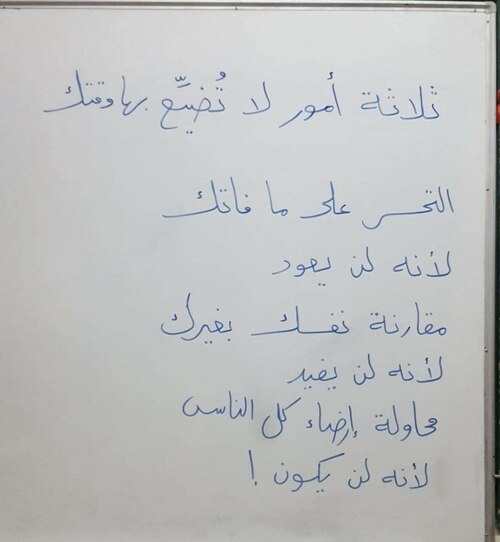 ثلاثة أمور لا تُضيِّع بها وقتك
التحسر على ما فاتك
لأنه لن يعود
مقارنة نفسك بغيرك
لأنه لن يفيد
محاولة إرضاء كل الناس
لأنه لن يكون !